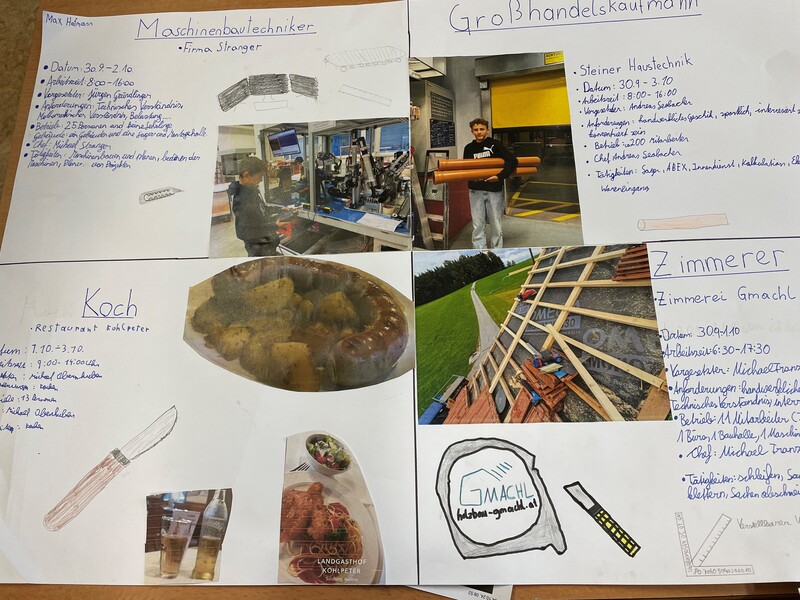 Max Hofmann
Maschinenbautechniker
• Firma Stranger
• Datum: 30.9.-2.10.
• Arbeitszeit: 8:00-16:00
• Vorgesetzter: Jürgen
• Anforderungen: Technisches Verständnis,
Mathematisches Verständnis,
• Betrieb: 25 Personen und
Gebäuden und eine Lager und
• Chef: Michael Stranger
• Tätigkeiten: Maschinen bauen und planen, bedienen der
Maschinen, Planer von Projekten
Großhandelskaufmann
Steiner Haustechnik
• Datum: 30.9-3.10
• Arbeitszeit: 8:00-16:00
• Vorgesetzter: Andreas Seebacher
Anforderungen: handwerkliches Geschick, sportlich, interessiert,
konzentriert sein
• Betrieb: ca 200 Mitarbeiter
• Chef: Andreas Seebacher
• Tätigkeiten: ABEX, Innendienst, Kalkulation,
Wareneingang
PUMA
Koch
• Restaurant Kohlpeter
1.10.-3.10.
9:00-14:00 Uhr
Michael Oberhuber
kochen
13 Personen
Michael Oberhuber
kochen
LANDGASTHOF
KOHLPETER
Zimmerer
• Zimmerei Gmachl
Datum: 30.9-1.10
Arbeitszeit: 6:30-17:30
• Vorgesetzter: Michael
• Anforderungen: handwerkliche
Technisches Verständnis,
• Betrieb: 11 Mitarbeiter
1 Büro, 1 Bauhalle, 1
• Chef: Michael
• Tätigkeiten: schleifen,
klettern, Sachen abschneiden
GMACHL
holzbau-gmachl.at